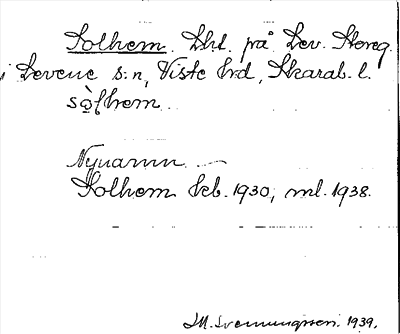 Solhem. Lht. på Lev. Storeg.
i Levene s:n, Viste hd, Skarab. l.
sòlhem.
Nynamn. —
Solhem kb. 1930, ml. 1938.
M. 1939.